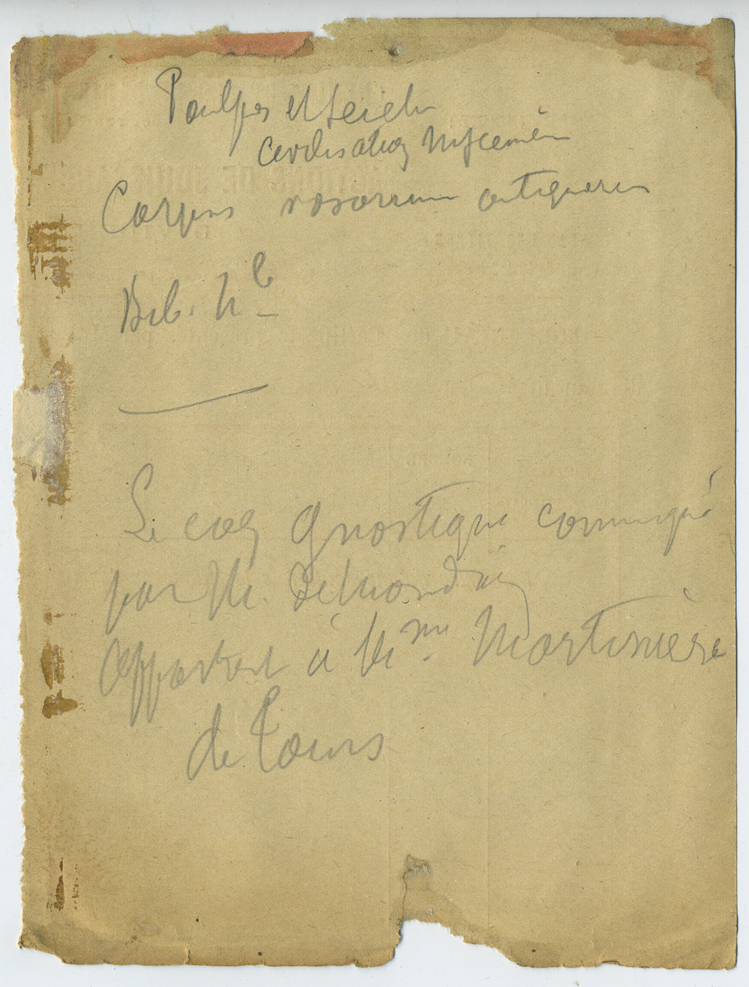 Poulpes et Seiche
Civilisation Mycénien
Corpus vasorum antiquorum
Bib. Nle
Le coq gnostique communiqué
par M.
Appartient à Mme Martinière
de Tours